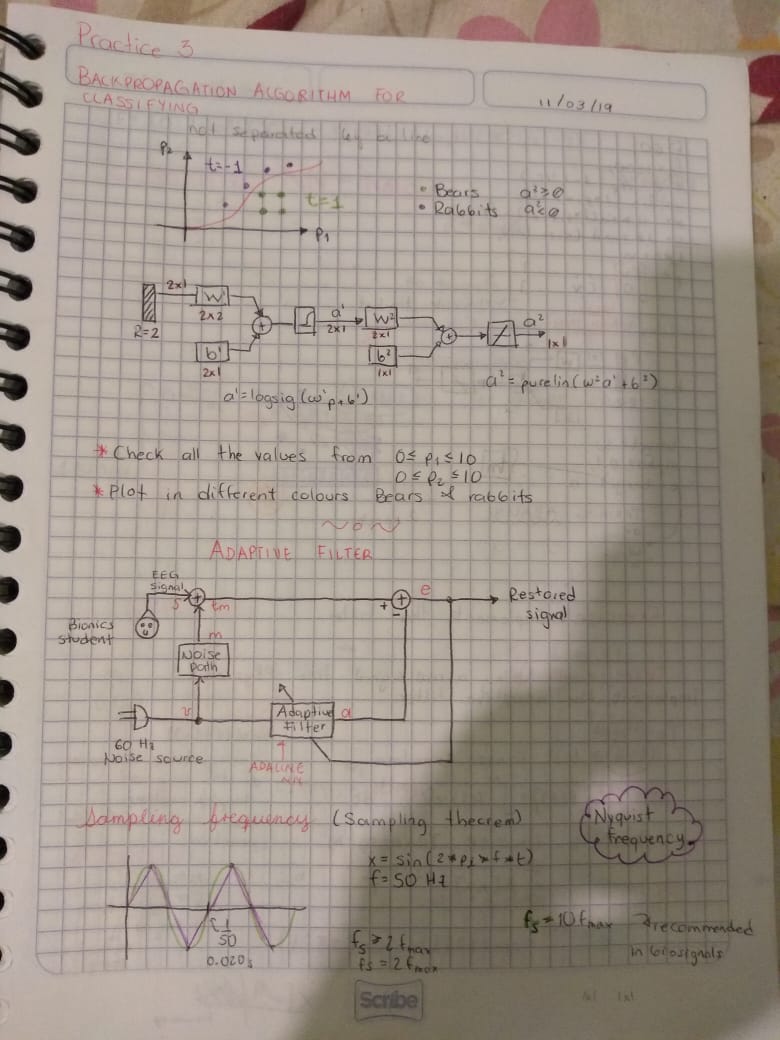 Practice 3
BACKPROPAGATION ALGORITHM FOR
CLASSIFYING
11/03/19
not separated by a line
P₂
t=-1
t=1
P₁
• Bears a²≥0
• Rabbits a²<0
2x1
W¹
2x2
R=2
b¹
2x1
a¹
2x1
W²
2x1
b²
1x1
a²
1x1
a¹=logsig(w¹p+b¹)
a²=purelin(w²a¹+b²)
* Check all the values from 0≤p₁≤10
0≤p₂≤10
* Plot in different colours Bears & rabbits
ADAPTIVE FILTER
EEG
signal
s
tm
+
-
e
Restored
signal
Bionics
student
m
Noise
path
v
Adaptive
Filter
a
60 Hz
Noise source
ADALINE
NN
Sampling frequency (Sampling theorem)
Nyquist
frequency
x = sin(2*pi*f*t)
f=50 Hz
1
50
0.020s
fs ≥ 2 fmax
fs = 2 fmax
fs = 10 fmax → recommended
in biosignals
Scribe